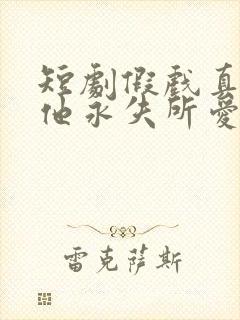 短劇假戲真
他永失所愛
雷克薩斯